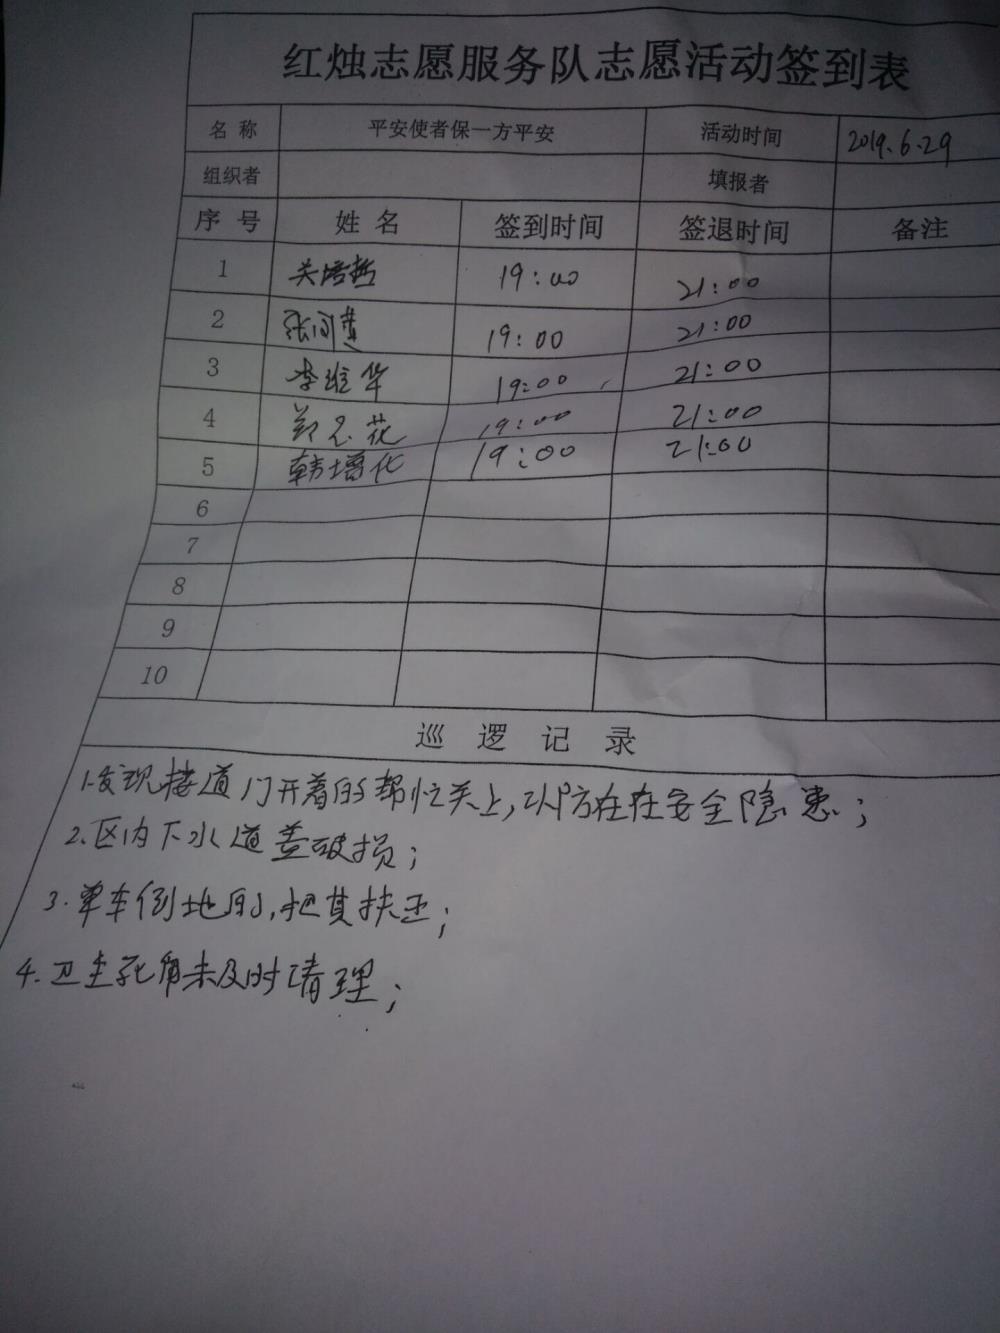 红烛志愿服务队志愿活动签到表
名称 平安使者保一方平安 活动时间 2019.6.29
组织者 填报者
序号 姓名 签到时间 签退时间 备注
1 关培哲 19:00 21:00
2 19:00 21:00
3 李维华 19:00 21:00
4 郑 花 19:00 21:00
5 韩增化 19:00 21:00
6
7
8
9
10
巡逻记录
1.发现楼道门开着的帮忙关上,以防存在安全隐患;
2.区内下水道盖破损;
3.单车倒地的,把其扶正;
4.卫生死角未及时清理;